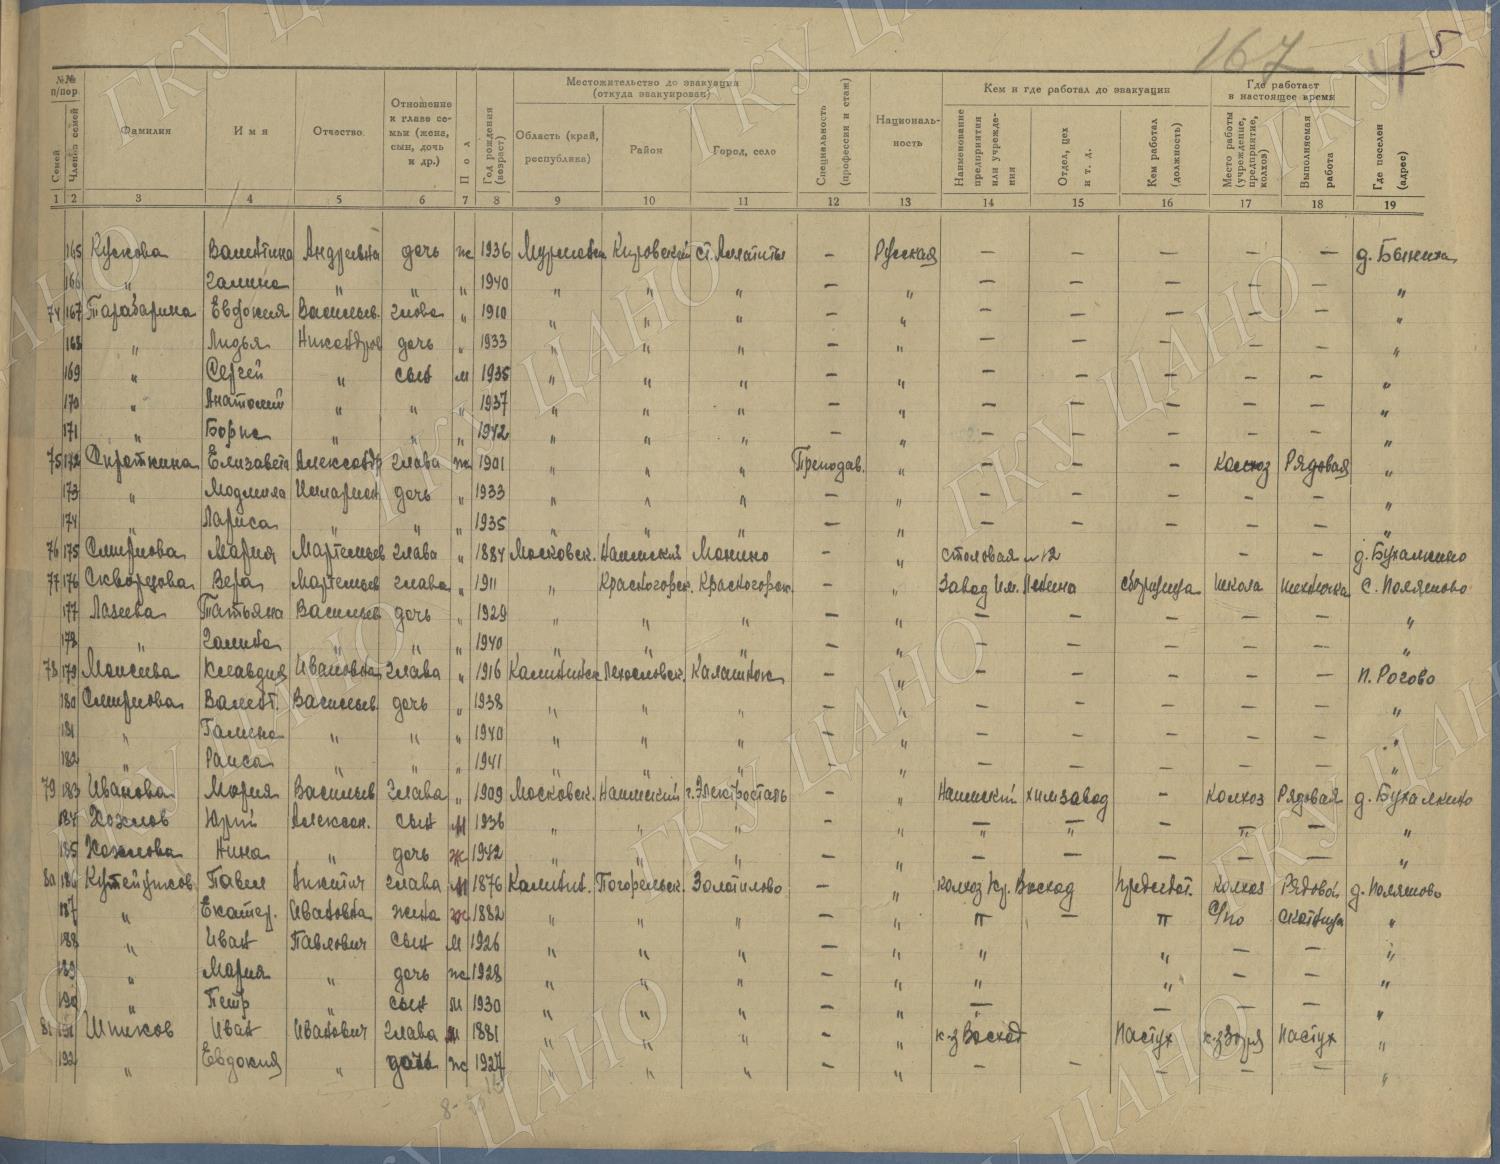 167 5
№№ п/пор
Семей
Членов семей
Фамилия
Имя
Отчество
Отношение к главе семьи (жена, сын, дочь и др.)
Пол
Год рождения (возраст)
Местожительство до эвакуации (откуда эвакуирован)
Область (край, республика)
Район
Город, село
Специальность (профессия и стаж)
Национальность
Кем и где работал до эвакуации
Наименование предприятия или учреждения
Отдел, цех и т. д.
Кем работал (должность)
Где работает в настоящее время
Место работы (учреждение, предприятие, колхоз)
Выполняемая работа
Где поселен (адрес)
1 2 3 4 5 6 7 8 9 10 11 12 13 14 15 16 17 18 19
165 Кускова Валентина Андреевна дочь ж 1936 Кировский ст. Аппатиты – Русская – – – – –
166 „ Галина „ „ „ 1940 „ „ „ – „ – – – – – „
74 167 Тарабарина Евдокия Васильев. глава „ 1910 „ „ „ – „ – – – – – „
168 „ Лидья дочь „ 1933 „ „ „ – „ – – – – – „
169 „ Сергей „ сын м 1935 „ „ „ – „ – – – – – „
170 „ Анатолий „ „ „ 1937 „ „ „ – „ – – – – – „
171 „ Борис „ „ „ 1942 „ „ „ – „ – – – – – „
75 172 Сироткина Елизавета Александр глава ж 1901 „ „ „ Преподав. „ – – – колхоз Рядовая „
173 „ Людмила дочь „ 1933 „ „ „ – „ – – – – – „
174 „ Лариса „ „ „ 1935 „ „ „ – „ – – – – – „
76 175 Смирнова Мария Мартемьев глава „ 1884 Московск. Монино – „ столовая №12 – – д. Бухалкино
77 176 Скворцова Вера Мартемьев глава „ 1911 „ Красногорск. Красногорск. – „ Завод Им. Ленина школа с. Поляшово
177 Лазиева Татьяна Васильев дочь „ 1929 „ „ „ – „ – – – – – „
178 „ Галина „ „ „ 1940 „ „ „ – „ – – – – – „
78 179 Моисеева Клавдия Ивановна глава „ 1916 Калининск – „ – – – – – п. Рогово
180 Смирнова Валент. Васильев. дочь „ 1938 „ „ „ – „ – – – – – „
181 „ Галина „ „ „ 1940 „ „ „ – „ – – – – – „
182 „ Раиса „ „ „ 1941 „ „ „ – „ – – – – – „
79 183 Иванова Мария Васильев глава „ 1909 Московск. г. Электросталь – „ химзавод – колхоз Рядовая д. Бухалкино
184 Хохлов Юрий Алексан. сын м 1936 „ „ „ – „ – – – „ – „
185 Хохлова Нина „ дочь ж 1942 „ „ „ – „ – – – – – „
80 186 Павел Никитич глава м 1876 Калинин. Погорельск. Золотилово – „ колхоз Кр. Восход председат. колхоз Рядовой д. Поляшово
187 „ Екатер. Ивановна жена ж 1882 „ „ „ – „ „ – „ С/по скотница „
188 „ Иван Павлович сын м 1926 „ „ „ – „ „ „ – – „
189 „ Мария „ дочь ж 1928 „ „ „ – „ „ „ – – „
190 „ Петр „ сын м 1930 „ „ „ – „ – – – – „
81 191 Шпиков Иван Иванович глава м 1881 „ „ „ – „ к-з Восход Пастух к-з Заря Пастух „
192 „ Евдокия „ дочь ж 1927 „ „ „ – „ – – – – – „
ГКУ ЦАНО